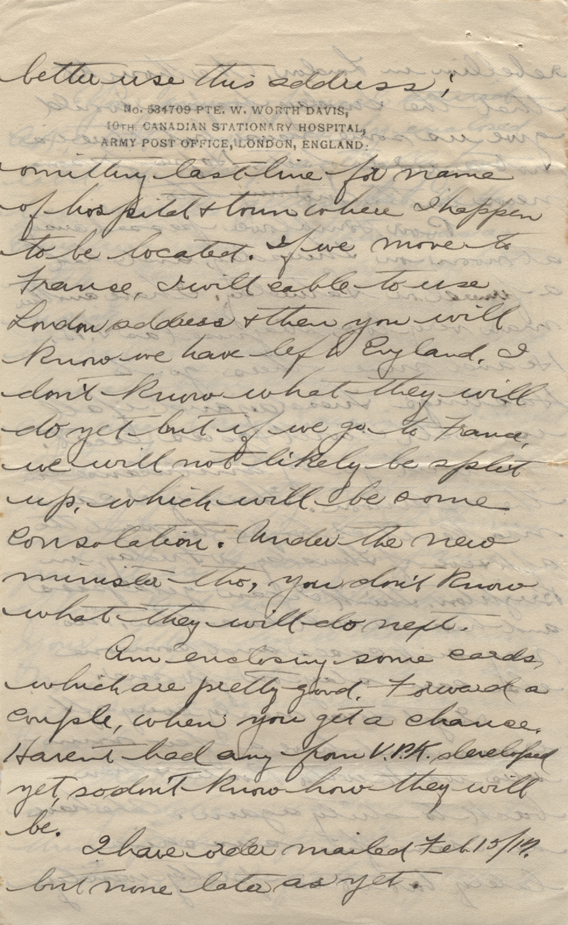 better use this address;
No. 534709 PTE. W. WORTH DAVIS,
10TH CANADIAN STATIONARY HOSPITAL,
ARMY POST OFFICE, LONDON, ENGLAND.
omitting last line for name
of hospital & town where I happen
to be located. If we move to
France, I will cable to use
London address & then you will
know we have left England. I
don't know what they will
do yet but if we go to France,
we will not likely be split
up, which will be some
consolation. Under the new
minister tho, you don't know
what they will do next.
Am enclosing some cards,
which are pretty good. Forward a
couple, when you get a chance.
Haven't had any from V.P.K. developed
yet, so don't know how they will
be.
I have order mailed Feb. 15/17.
but none later as yet.